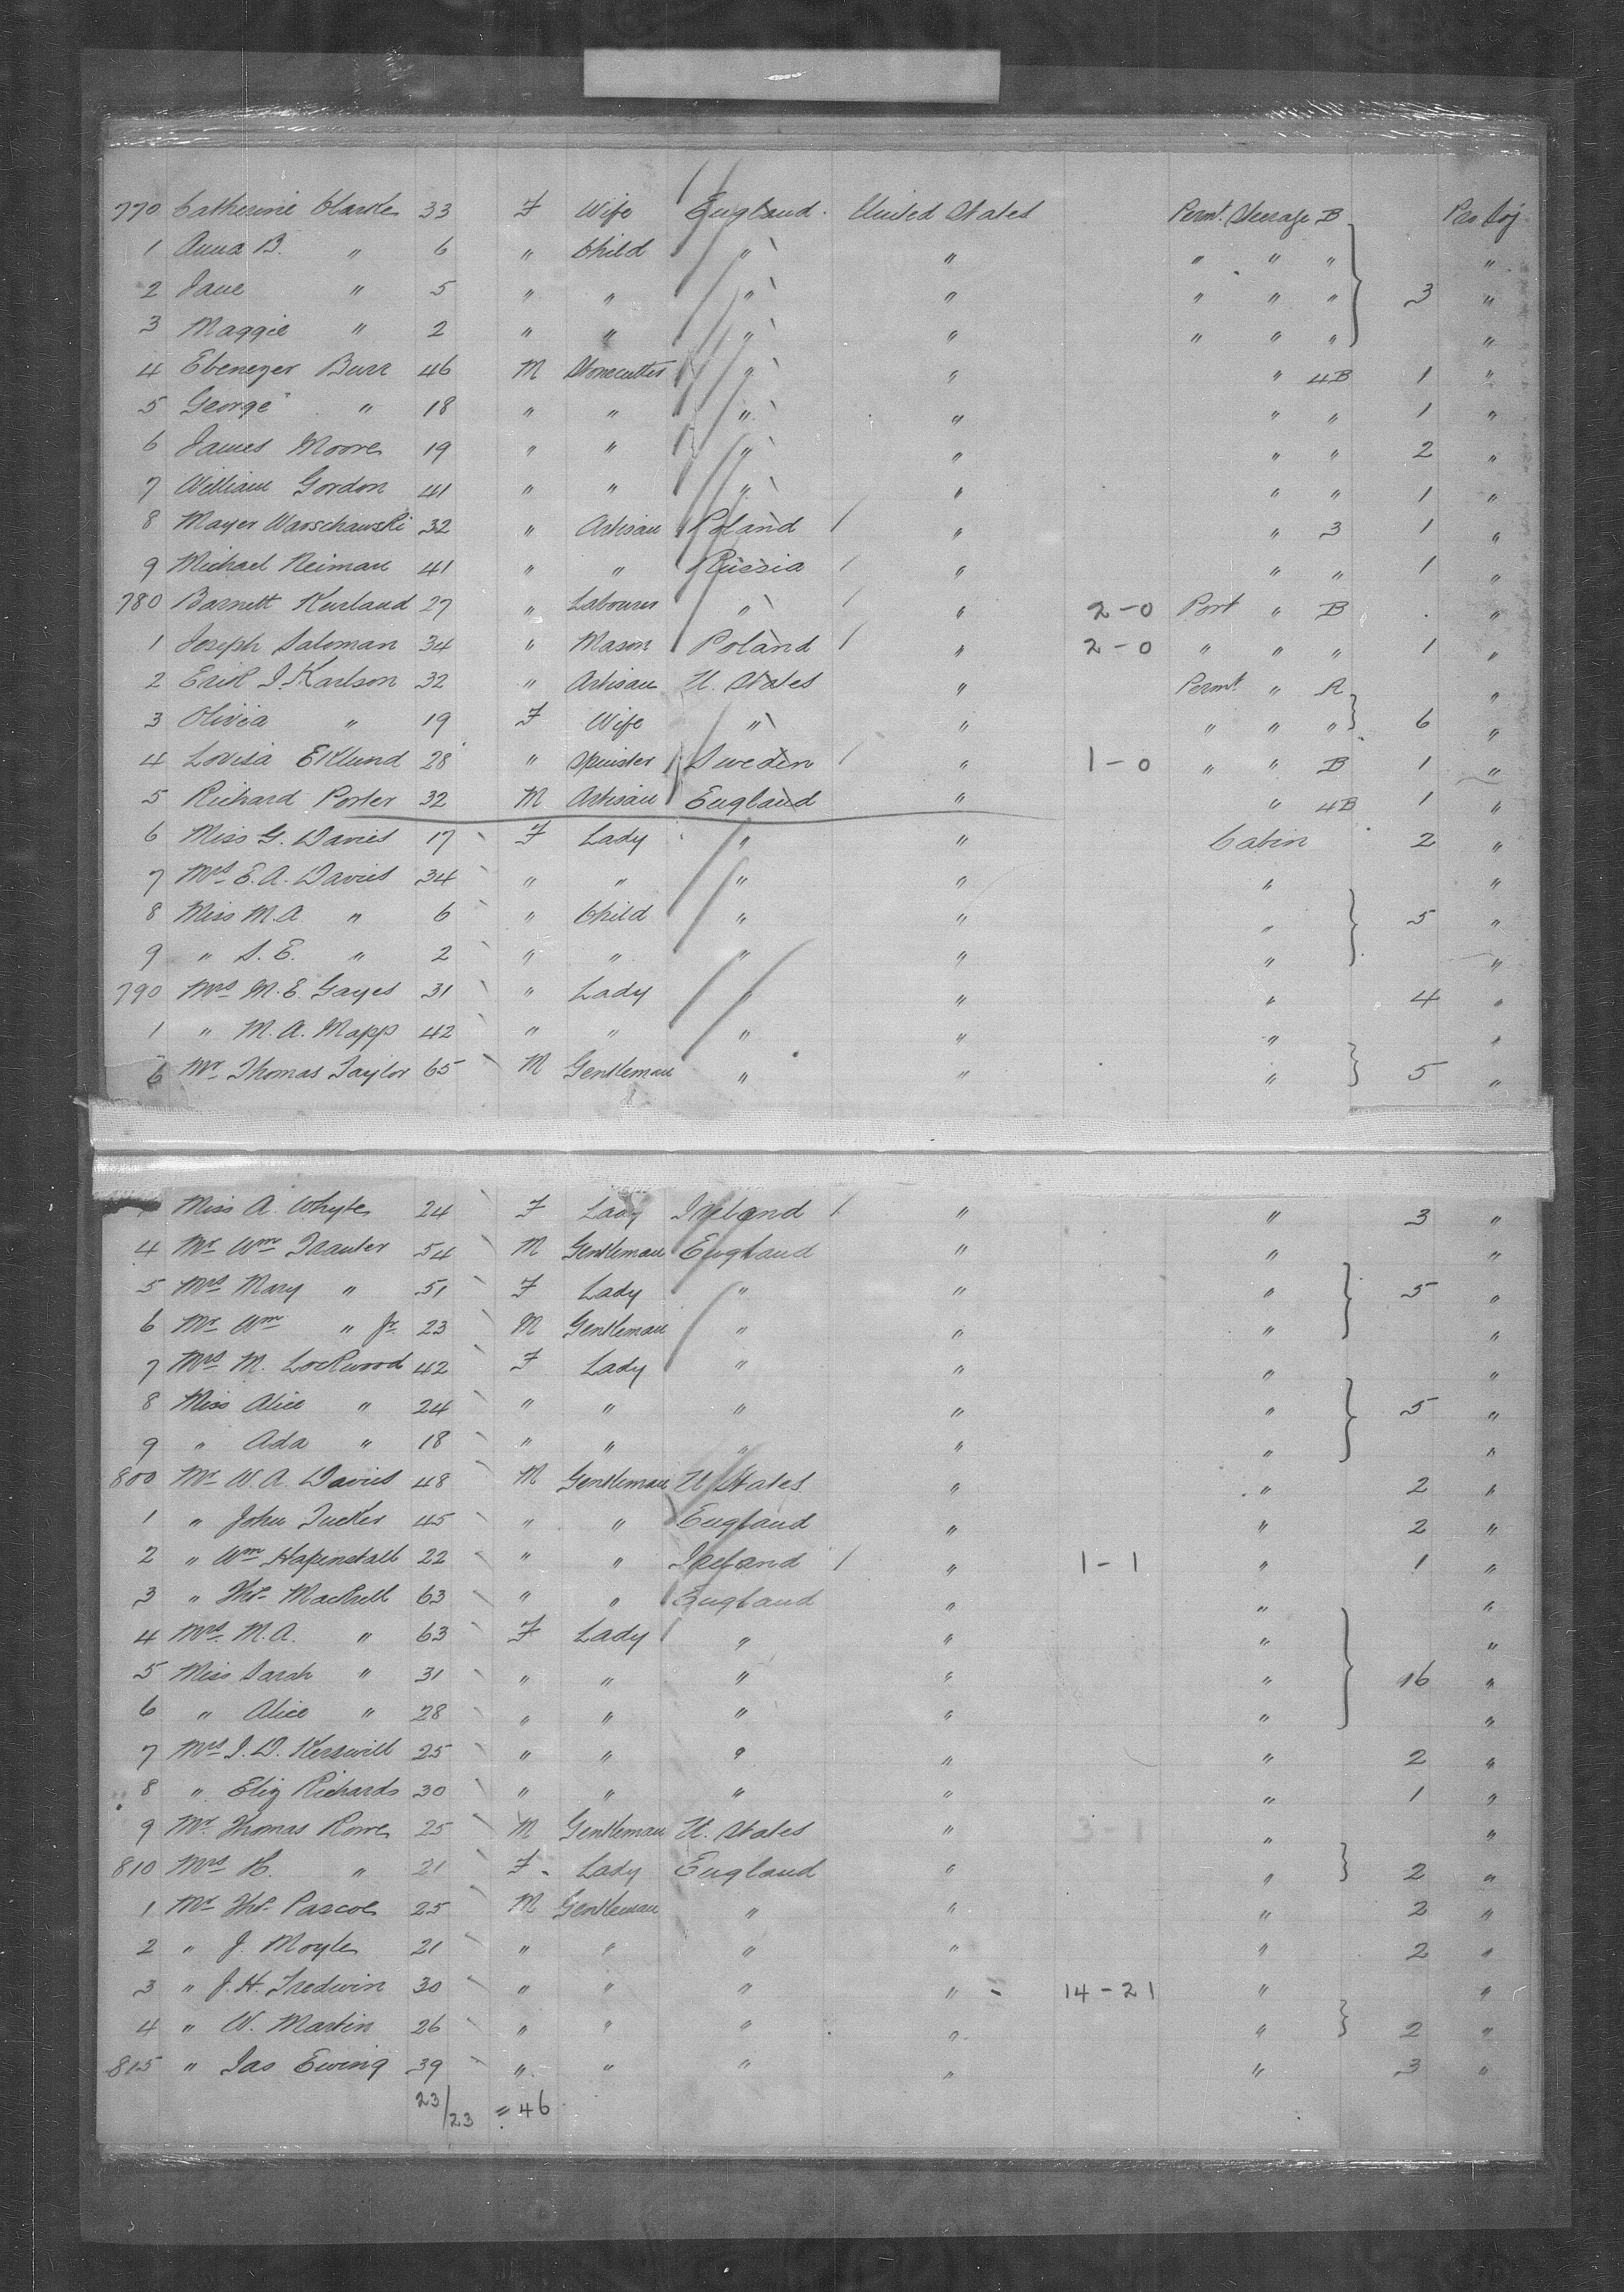 770 Catherine Clarke 33 F Wife England. United States Permt. Steerage B Pro Soj.
1 Anna B. " 6 " Child " " " " " "
2 Jane " 5 " " " " " " " 3 "
3 Maggie " 2 " " " " " " " "
4 Ebenezer Burr 46 M Stonecutter " " " 4B 1 "
5 George " 18 " " " " " " 1 "
6 James Moore 19 " " " " " " 2 "
7 William Gordon 41 " " " " " " 1 "
8 Mayer Warschawski 32 " Artisan Poland / " " 3 1 "
9 Michael Neiman 41 " " Russia / " " " 1 "
780 Barnett Kurland 27 " Labourer " / " 2-0 Port " B . "
1 Joseph Saloman 34 " Mason Poland / " 2-0 " " " 1 "
2 Erik J. Karlson 32 " Artisan U. States " Permt. " A "
3 Olivia " 19 F Wife " " " " " 6 "
4 Lovisa Eklund 28 " Spinster Sweden / " 1-0 " " B 1 "
5 Richard Porter 32 M Artisan England " " 4B 1 "
6 Miss G. Davies 17 F Lady " " Cabin 2 "
7 Mrs E.A. Davies 34 " " " " " "
8 Miss M.A. " 6 " Child " " " 5 "
9 " S.E. " 2 " " " " " "
790 Mrs M.E. Gayes 31 " Lady " " " 4 "
1 " M.A. Mapp 42 " " " " " "
6 Mr Thomas Taylor 65 M Gentleman " " " 5 "
Miss A. Whyte 24 F Lady Ireland / " " 3 "
4 Mr Wm Tranter 54 M Gentleman England " " "
5 Mrs Mary " 51 F Lady " " " 5 "
6 Mr Wm " Jr. 23 M Gentleman " " " "
7 Mrs M. Lockwood 42 F Lady " " " "
8 Miss Alice " 24 " " " " " 5 "
9 " Ada " 18 " " " " " "
800 Mr W.A. Davies 48 M Gentleman U States " " 2 "
1 " John Tucker 45 " " England " " 2 "
2 " Wm Hapenstall 22 " " Ireland / " 1-1 " 1 "
3 " Thos. Mackrell 63 " " England " " "
4 Mrs. M.A. " 63 F Lady " " " "
5 Miss Sarah " 31 " " " " " 16 "
6 " Alice " 28 " " " " " "
7 Mrs J.D. Kerswill 25 " " " " " 2 "
8 " Eliz Richards 30 " " " " " 1 "
9 Mr. Thomas Rowe 25 M Gentleman U. States " 3 1 " "
810 Mrs H. " 21 F Lady England " " 2 "
1 Mr Thos. Pascoe 25 M Gentleman " " " 2 "
2 " J. Moyle 21 " " " " " 2 "
3 " J.H. Tredwin 30 " " " " = 14-21 " "
4 " W. Martin 26 " " " " " 2 "
815 " Jas Ewing 39 " " " " " 3 "
23/23 = 46